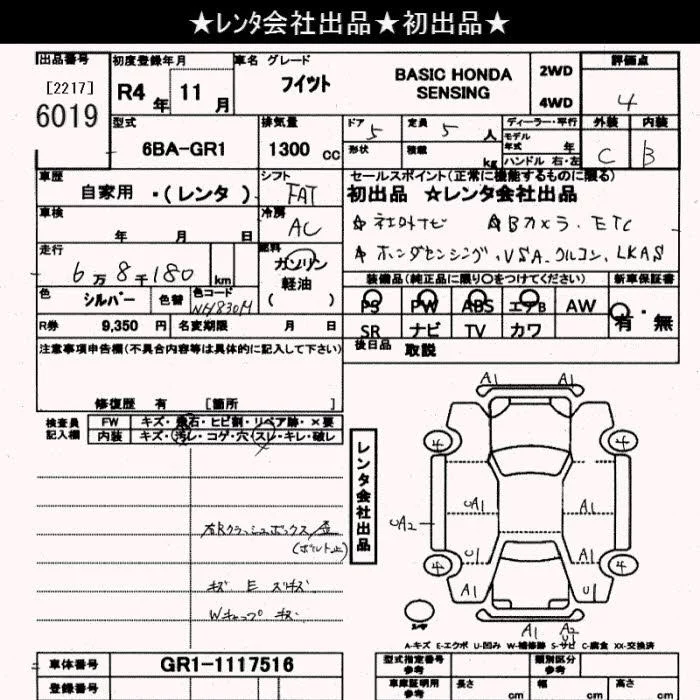 ★ﾚﾝﾀ会社出品★初出品★
出品番号 初度登録年月 車名 グレード 評価点
[2217] 6019 R4年 11月 フイツト BASIC HONDA SENSING 2WD 4WD 4
型式 排気量 ドア 5 定員 5人 ディーラー・平行 外装 内装
6BA-GR1 1300 cc 形状 積載 kg モデル年式 年 ハンドル 右・左 C B
車歴 シフト セールスポイント(正常に機能するものに限る)
自家用 ・(レンタ) FAT 初出品 ☆レンタ会社出品
車検 年 月 日 冷房 AC
☆Bカメラ. ETC
走行 6万8千180 km 燃料 ガソリン 軽油 ( )
☆ホンダセンシング、VSA.クルコン、LKAS
装備品(純正品に限り〇をつけてください) 新車保証書
色 シルバー 色替 色コード NH830M PS PW ABS エアB AW 有・無
R券 9,350 円 名変期限 月 日 SR ナビ TV カワ
注意事項申告欄(不具合内容等は具体的に記入して下さい) 後日品 取説
修復歴 有 [箇所 ]
検査員記入欄 FW キズ・飛石・ヒビ割・リペア跡・×要
内装 キズ・汚レ・コゲ・穴・スレ・キレ・破レ
レンタ会社出品
右Rクラッシュボックス/
(ボルト止)
キズ E
Wキャップ キズ
A1 A1
4 4
UA1 A1
UA2
U1
4 4
A1 U1
A1 A2
U1
A-キズ E-エクボ U-凹み W-補修跡 S-サビ C-腐食 XX-交換済
車体番号 GR1-1117516 型式指定番号 参考 類別区分 参考
登録番号 車庫証明用 参考 長さ cm 幅 cm 高さ cm